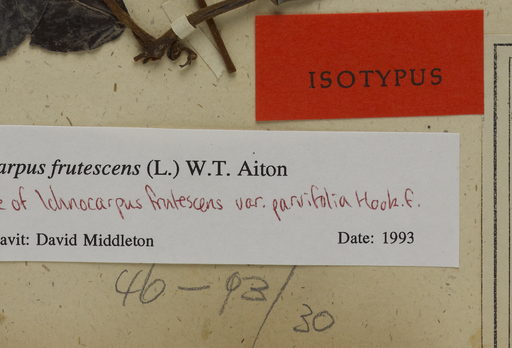 ISOTYPUS
arpus frutescens (L.) W.T. Aiton
e of Ichnocarpus frutescens var. parvifolia Hook.f.
avit: David Middleton Date: 1993
46-93/30